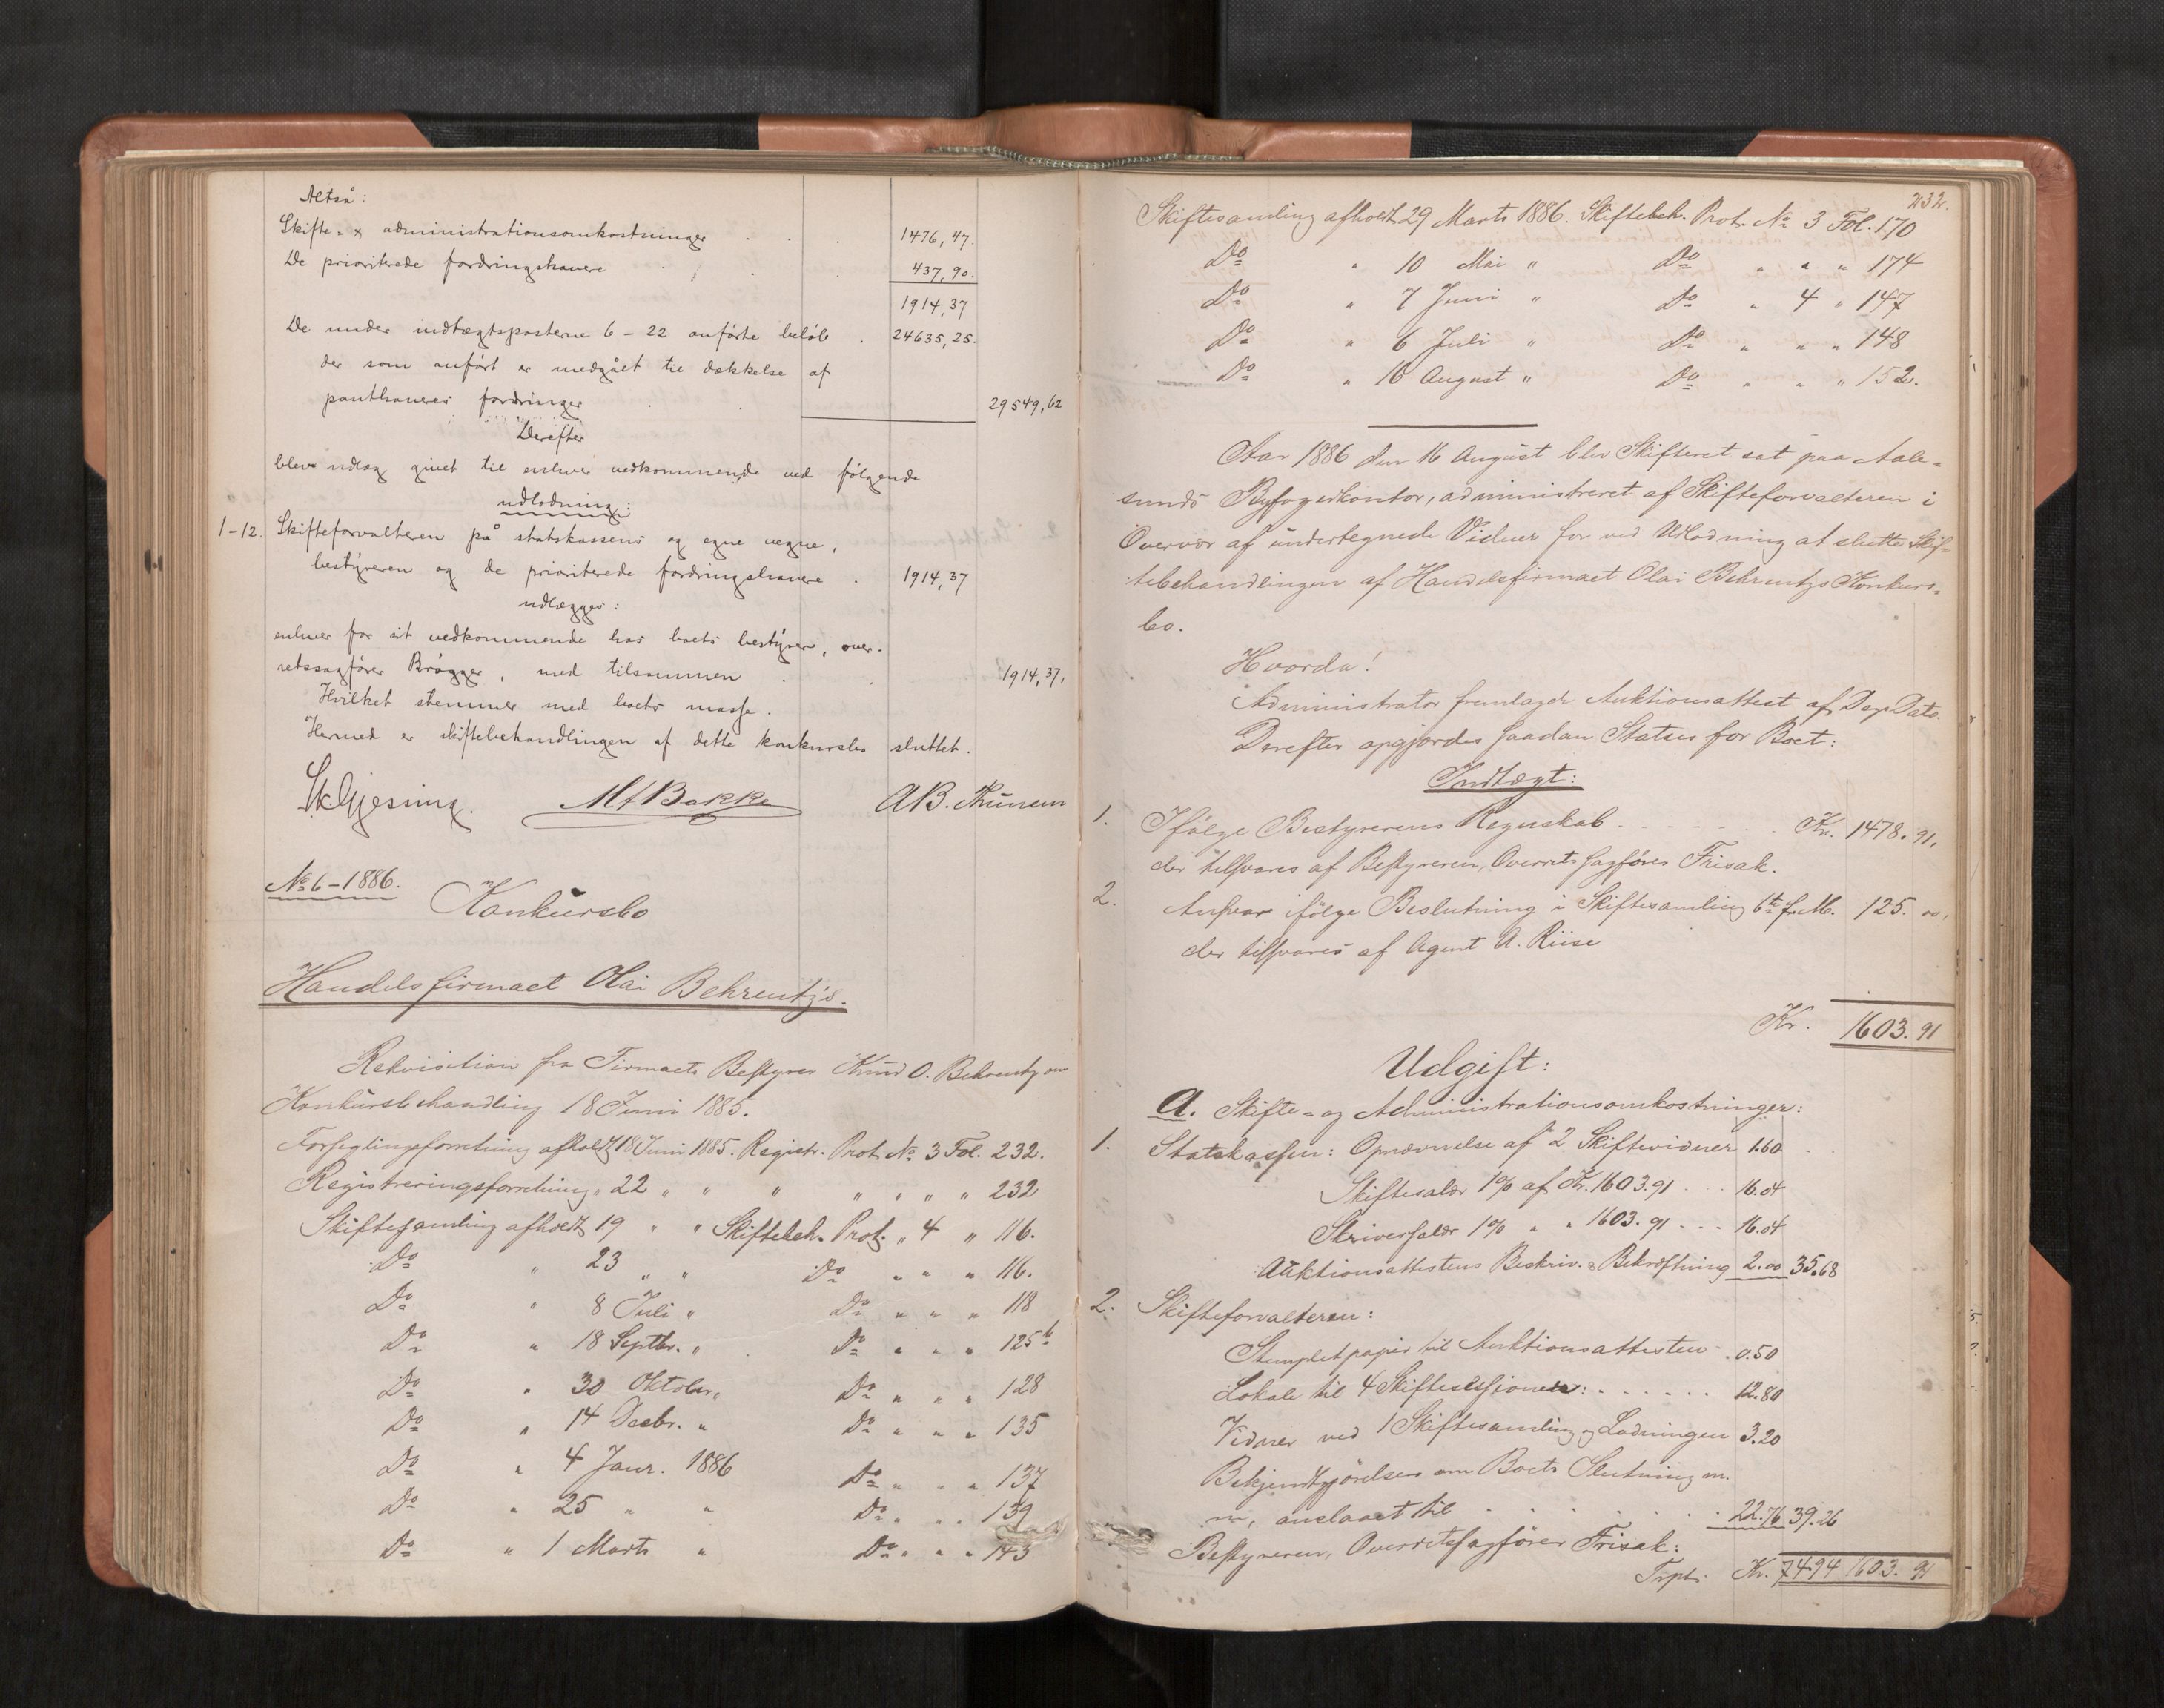 Altså:
Skifte- & administrationsomkostninger . . . 1476,47.
De prioriterede fordringshavere . . . 437,90.
1914,37
De under indtægtsposterne 6-22 anførte beløb . 24635,25.
der som anført er medgået til dækkelse af
panthaveres fordringer . . 29549,62
Derefter
blev udlæg givet til enhver vedkommende ved følgende
udlodning:
1-12. Skifteforvalteren på statskassens og egne vegne,
bestyreren og de prioriterede fordringshavere . 1914,37
udlægges:
enhver for sit vedkommende hos boets bestyrer, over-
retssagfører Brøgger, med tilsammen . . 1914,37,
Hvilket stemmer med boets masse.
Hermed er skiftebehandlingen af dette konkursbo sluttet.
Gjessing. Bakke AB. Thunem
No 6-1886.
Konkursbo
Handelsfirmaet Olai Behrentz's.
Rekvisition fra Firmaets Bestyrer Knud O. Behrentz om
Konkursbehandling 18 Juni 1885.
Forseglingsforretning afholdt 18 Juni 1885. Registr. Prot. No 3 Fol. 232.
Registreringsforretning " 22 " " " " " " " 232
Skiftesamling afholdt 19 " " Skiftebeh. Prot. " 4 " 116.
Do " 23 " " Do " " " 116.
Do " 8 Juli " Do " " " 118
Do " 18 Septbr. " Do " " " 125b
Do " 30 Oktober " Do " " " 128
Do " 14 Decbr. " Do " " " 135
Do " 4 Janr. 1886 Do " " " 137
Do " 25 " " Do " " " 139
Do " 1 Marts " Do " " " 143
232.
Skiftesamling afholdt 29 Marts 1886. Skiftebeh. Prot. No 3 Fol. 170
Do " 10 Mai " Do " " " 174
Do " 7 Juni " Do " 4 " 147
Do " 6 Juli " Do " " " 148
Do " 16 August " Do " " " 152.
Aar 1886 den 16 August blev Skifteret sat paa Aale-
sunds Byfogedkontor, administreret af Skifteforvalteren i
Overvær af undertegnede Vidner for ved Udlodning at slutte Skif-
tebehandlingen af Handelsfirmaet Olai Behrentz's Konkurs-
bo.
Hvorda!
Administrator fremlagde Auktionsattest af Dags Dato.
Derefter opgjordes saadan Status for Boet:
Indtægt:
1. Ifølge Bestyrerens Regnskab . . . Kr. 1478.91.
der tilsvares af Bestyreren, Overretssagfører Frisak.
2. Ansvar ifølge Beslutning i Skiftesamling 6te f. M. 125.00,
der tilsvares af Agent A. Riise
Kr. 1603.91
Udgift:
A. Skifte- og Administrationsomkostninger:
1. Statskassen: Opnævnelse af 2 Skiftevidner 1.60
Skiftesalær 1% af Kr. 1603.91 . . . 16.04
Skriversalær 1% " " 1603.91 . . . 16.04
Auktionsattestens Beskriv. & Bekræftning 2.00 35.68
2. Skifteforvalteren:
Stemplet papir til Auktionsattesten . 0.50
Lokale til 4 Skiftesessioner: . . . . . 12.80
Vidner ved 1 Skiftesamling og Lodningen 3.20
Bekjendtgjørelsen om Boets Slutning m.
m, anslaaet til . . . . . 22.76 39.26
Bestyreren, Overretssagfører Frisak:
Trpt. Kr. 74.94 1603.91